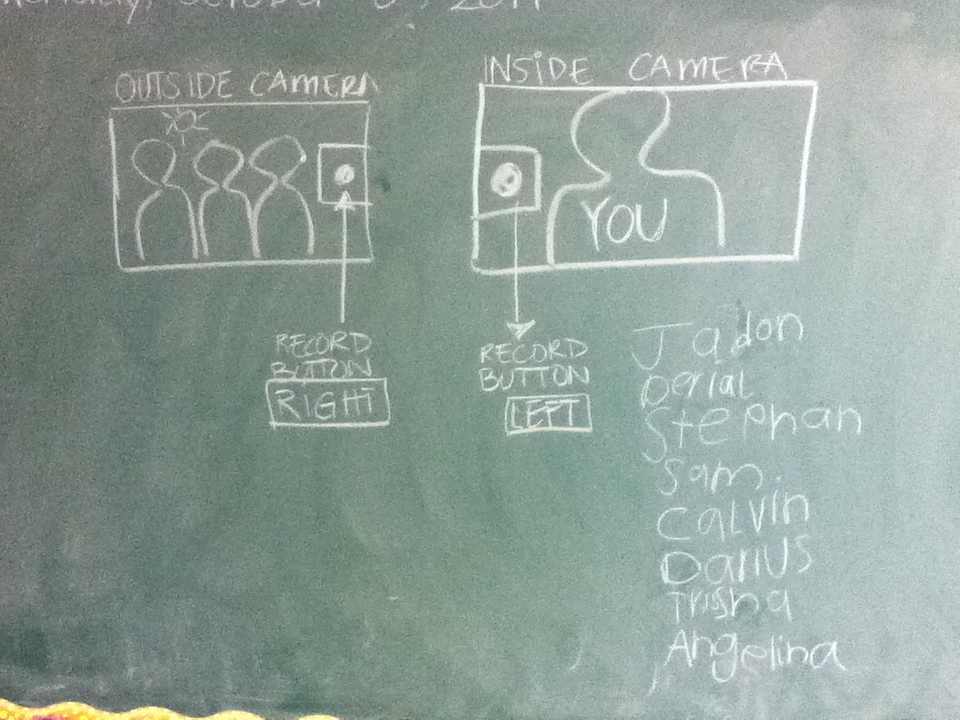 OUTSIDE CAMERA
INSIDE CAMERA
YOU
RECORD
BUTTON
RIGHT
RECORD
BUTTON
LEFT
Jadon
Derial
Stephan
Sam
Calvin
Darius
Trisha
Angelina